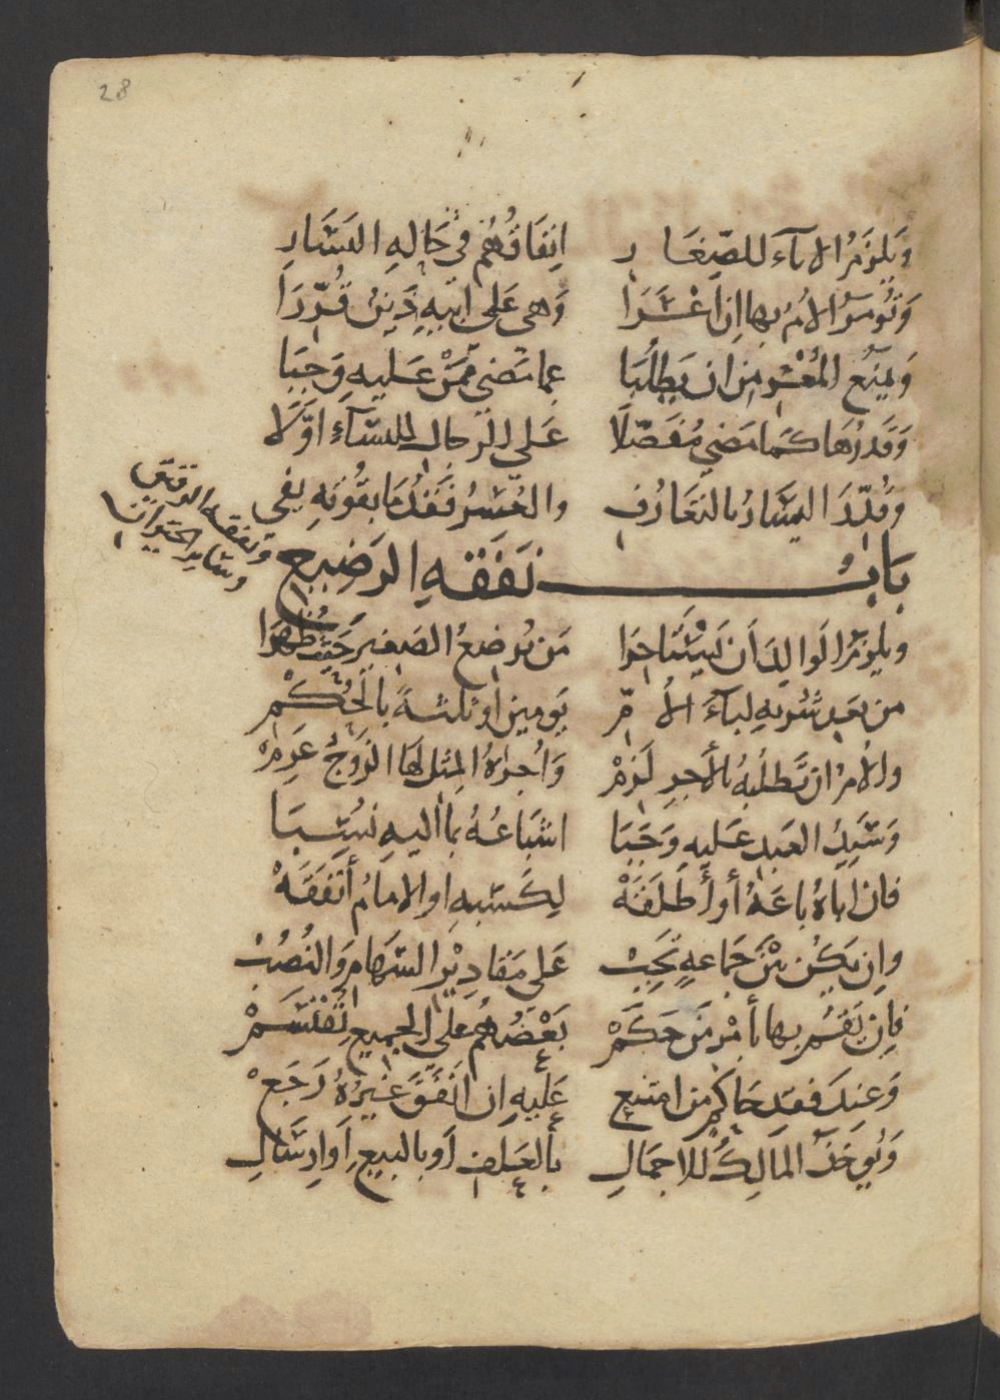 28
وَيَلزَمُ الاباء للصِّغَارِ انفَاقُهُم في حَالِهِ اليَسَارِ
وَتُؤمَرُ الأمُ بها إن أعْسَرَا وَهي عَلى ابيهِ دَينٌ قُرِّرَا
وَيمنَعُ المُعْسِر مِن ان يَطلُبَا بما مَضَى مِمَّنْ عَليهِ وَجَبَا
وَقدرُهَا كَمَا مَضي مُفَصّلَا عَلى الرجال للنسَآءِ اوَّلَا
وقُيِّدَ اليسَارُ بالتعَارُفِ والعُسْرُ فَقدُ مَا بقُوتِهِ يفي
بَابُ نَفَقَهِ الرَضيعِ
وَنفقه الرقيق وسَايرِ الحَيَوانِ
ويلزمُ الوالِدَ أن يَستَاجِرَا مَن يُرضعُ الصَغيرَ حَيثُ ظهَرَا
من بَعدِ شربهِ لباءَ الأمِّ يَومينِ أو ثلثةً بالحُكمِ
والأمرُ ان تَطلُبهُ بالأجرِ لَزِمْ وَأجرَةُ المِثل لهَا الزَوجُ غَرِمْ
وَسَيِدُ العَبدِ عَليهِ وَجَبَا اشبَاعُهُ بما اليهِ نُسِبَا
فان اباهُ باعَهُ أو أطلَقَهْ لِكَسْبهِ او الامامُ أنفَقَهْ
وإن يَكُن بَيْنَ جَماعهٍ تَجِبْ عَلى مَقاديْرِ السّهَامِ وَالنُصُبْ
فإن يَقُم بها بأمْرِ مَن حَكَمْ بَعْضُهُم على الجميعِ تُقتَسَمْ
وَعِندَ فقدِ حَاكِمٍ من امتنع عَليهِ إن انفَقَ غَيرُهُ رَجَعْ
وَيُوخَذُ المَالِكُ للاجمَالِ بالعَلفِ أو بالبيعِ أو إرسَالِ